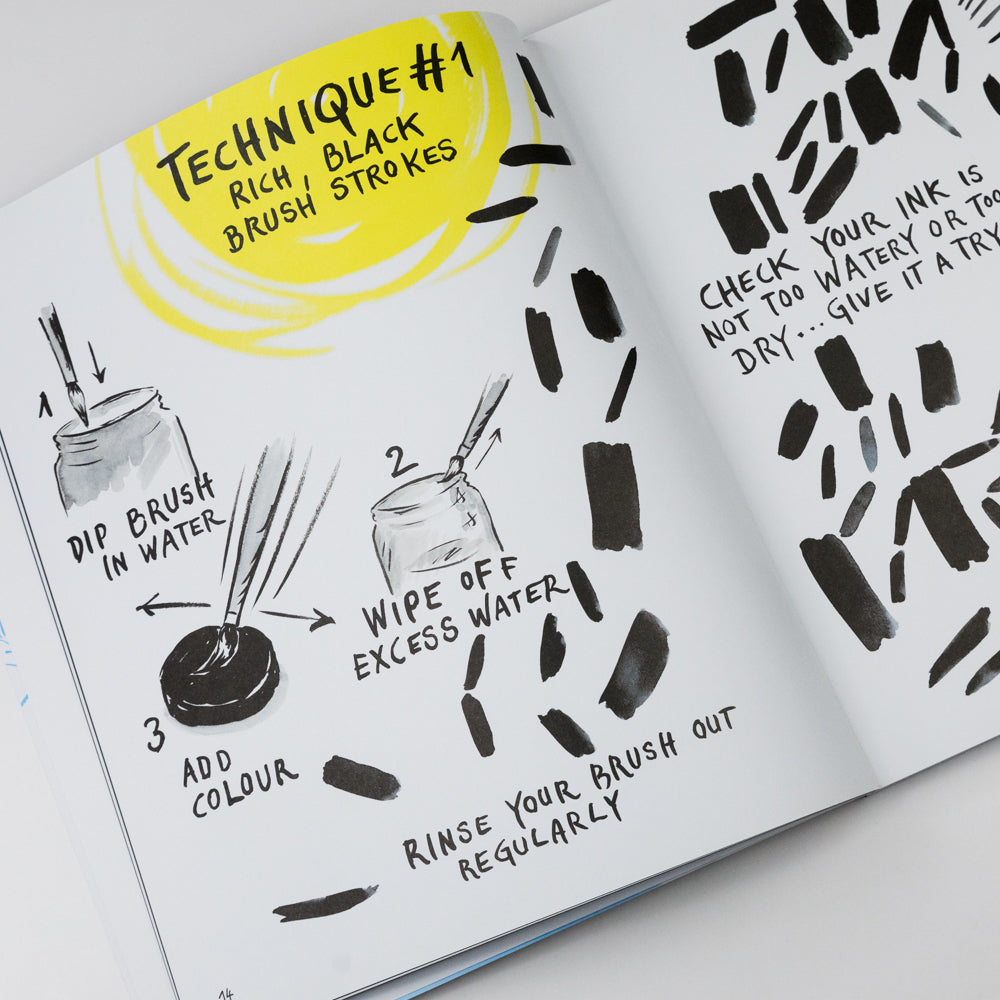 TECHNIQUE #1
RICH, BLACK
BRUSH STROKES
1
DIP BRUSH
IN WATER
2
WIPE OFF
EXCESS WATER
3
ADD
COLOUR
RINSE YOUR BRUSH OUT
REGULARLY
14
CHECK YOUR INK IS
NOT TOO WATERY OR TOO
DRY... GIVE IT A TRY